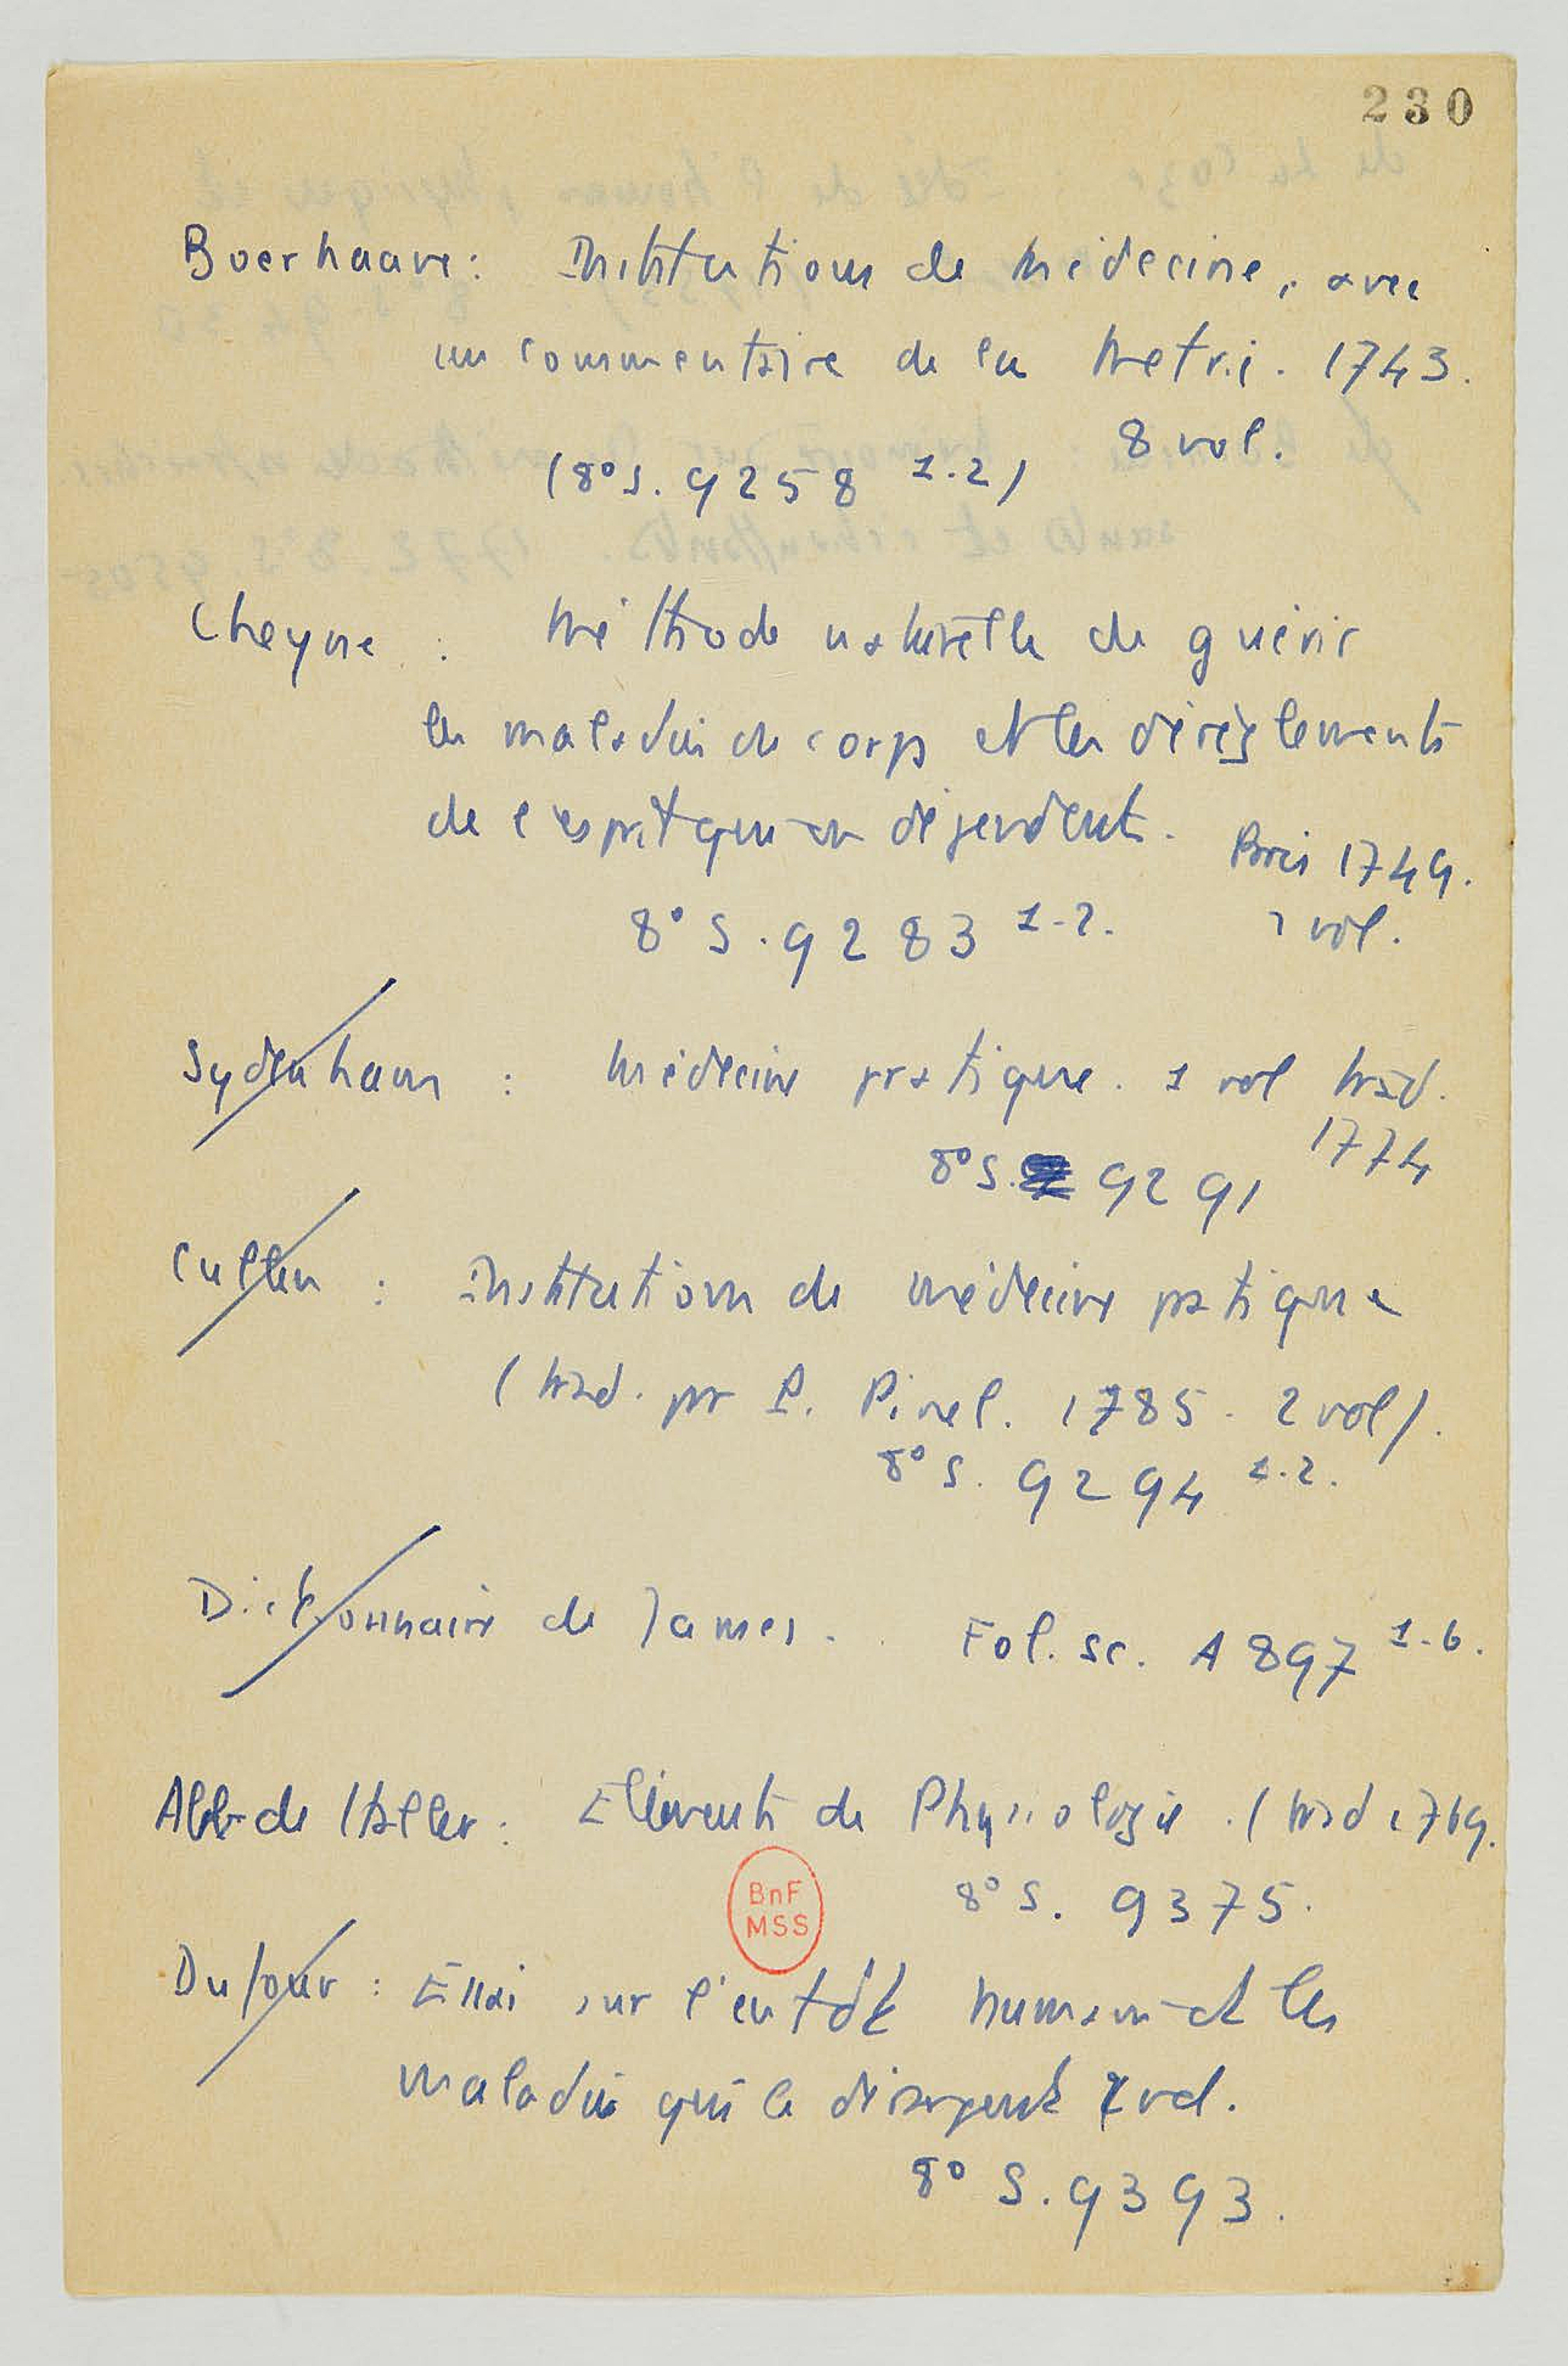 230
Boerhaave : Institutions de médecine, avec
un commentaire de la Metrie. 1743.
8 vol.
(8° S. 9258 1-2)
Cheyne : Méthode naturelle de guérir
les maladies du corps et les dérèglements
de l'esprit qui en dépendent. Paris 1749.
8° S. 9283 1-2. 2 vol.
Sydenham : Médecine pratique. 1 vol trad.
1774
8° S. 9291
Cullen : Institutions de médecine pratique
(trad. par P. Pinel. 1785. 2 vol).
8° S. 9294 1-2.
Dictionnaire de James. Fol. Sc. A 897 1-6.
Alb. de Haller : Eléments de Physiologie. (trad 1769.
8° S. 9375.
BnF
MSS
Dufour : Essai sur l'entdt humain et les
maladies qui le dérangent vol.
8° S. 9393.